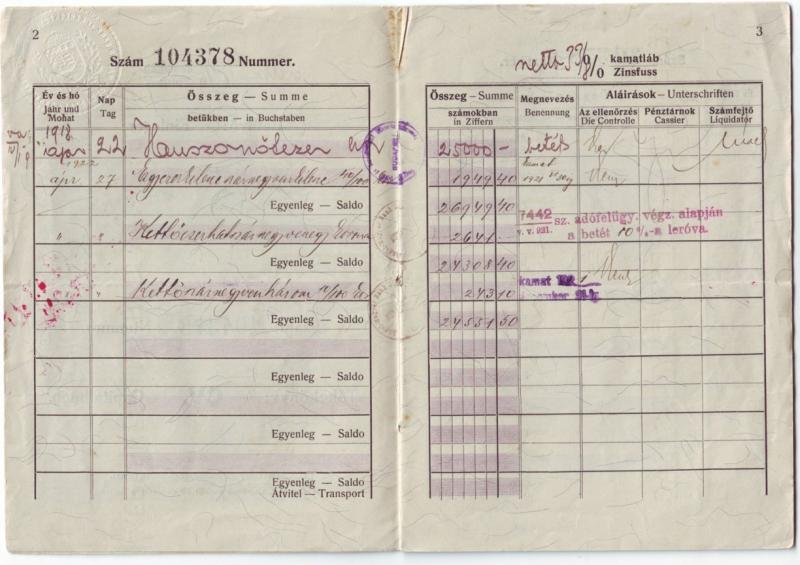 2
Szám 104378 Nummer.
Év és hó
Jahr und
Mohat
Nap
Tag
Összeg — Summe
betükben — in Buchstaben
1918
ápr 22 Huszonötezer
1922
ápr 27
Egyenleg — Saldo
" "
Egyenleg — Saldo
" " Kettőszáznegyvenhárom 10/100
Egyenleg — Saldo
Egyenleg — Saldo
Egyenleg — Saldo
Egyenleg — Saldo
Átvitel — Transport
BUDAPEST
3
netto
kamatláb
Zinsfuss
Összeg — Summe
számokban
in Ziffern
Megnevezés
Benennung
Aláirások — Unterschriften
Az ellenörzés
Die Controlle
Pénztárnok
Cassier
Számfejtő
Liquidator
25000 — betét
kamat
1949 40 1921
26949 40
7442 sz. adófelügy. végz. alapján
v. v. 921. a betét 10%-a leróva.
2641 -
24308 40
kamat
243 10
24551 50